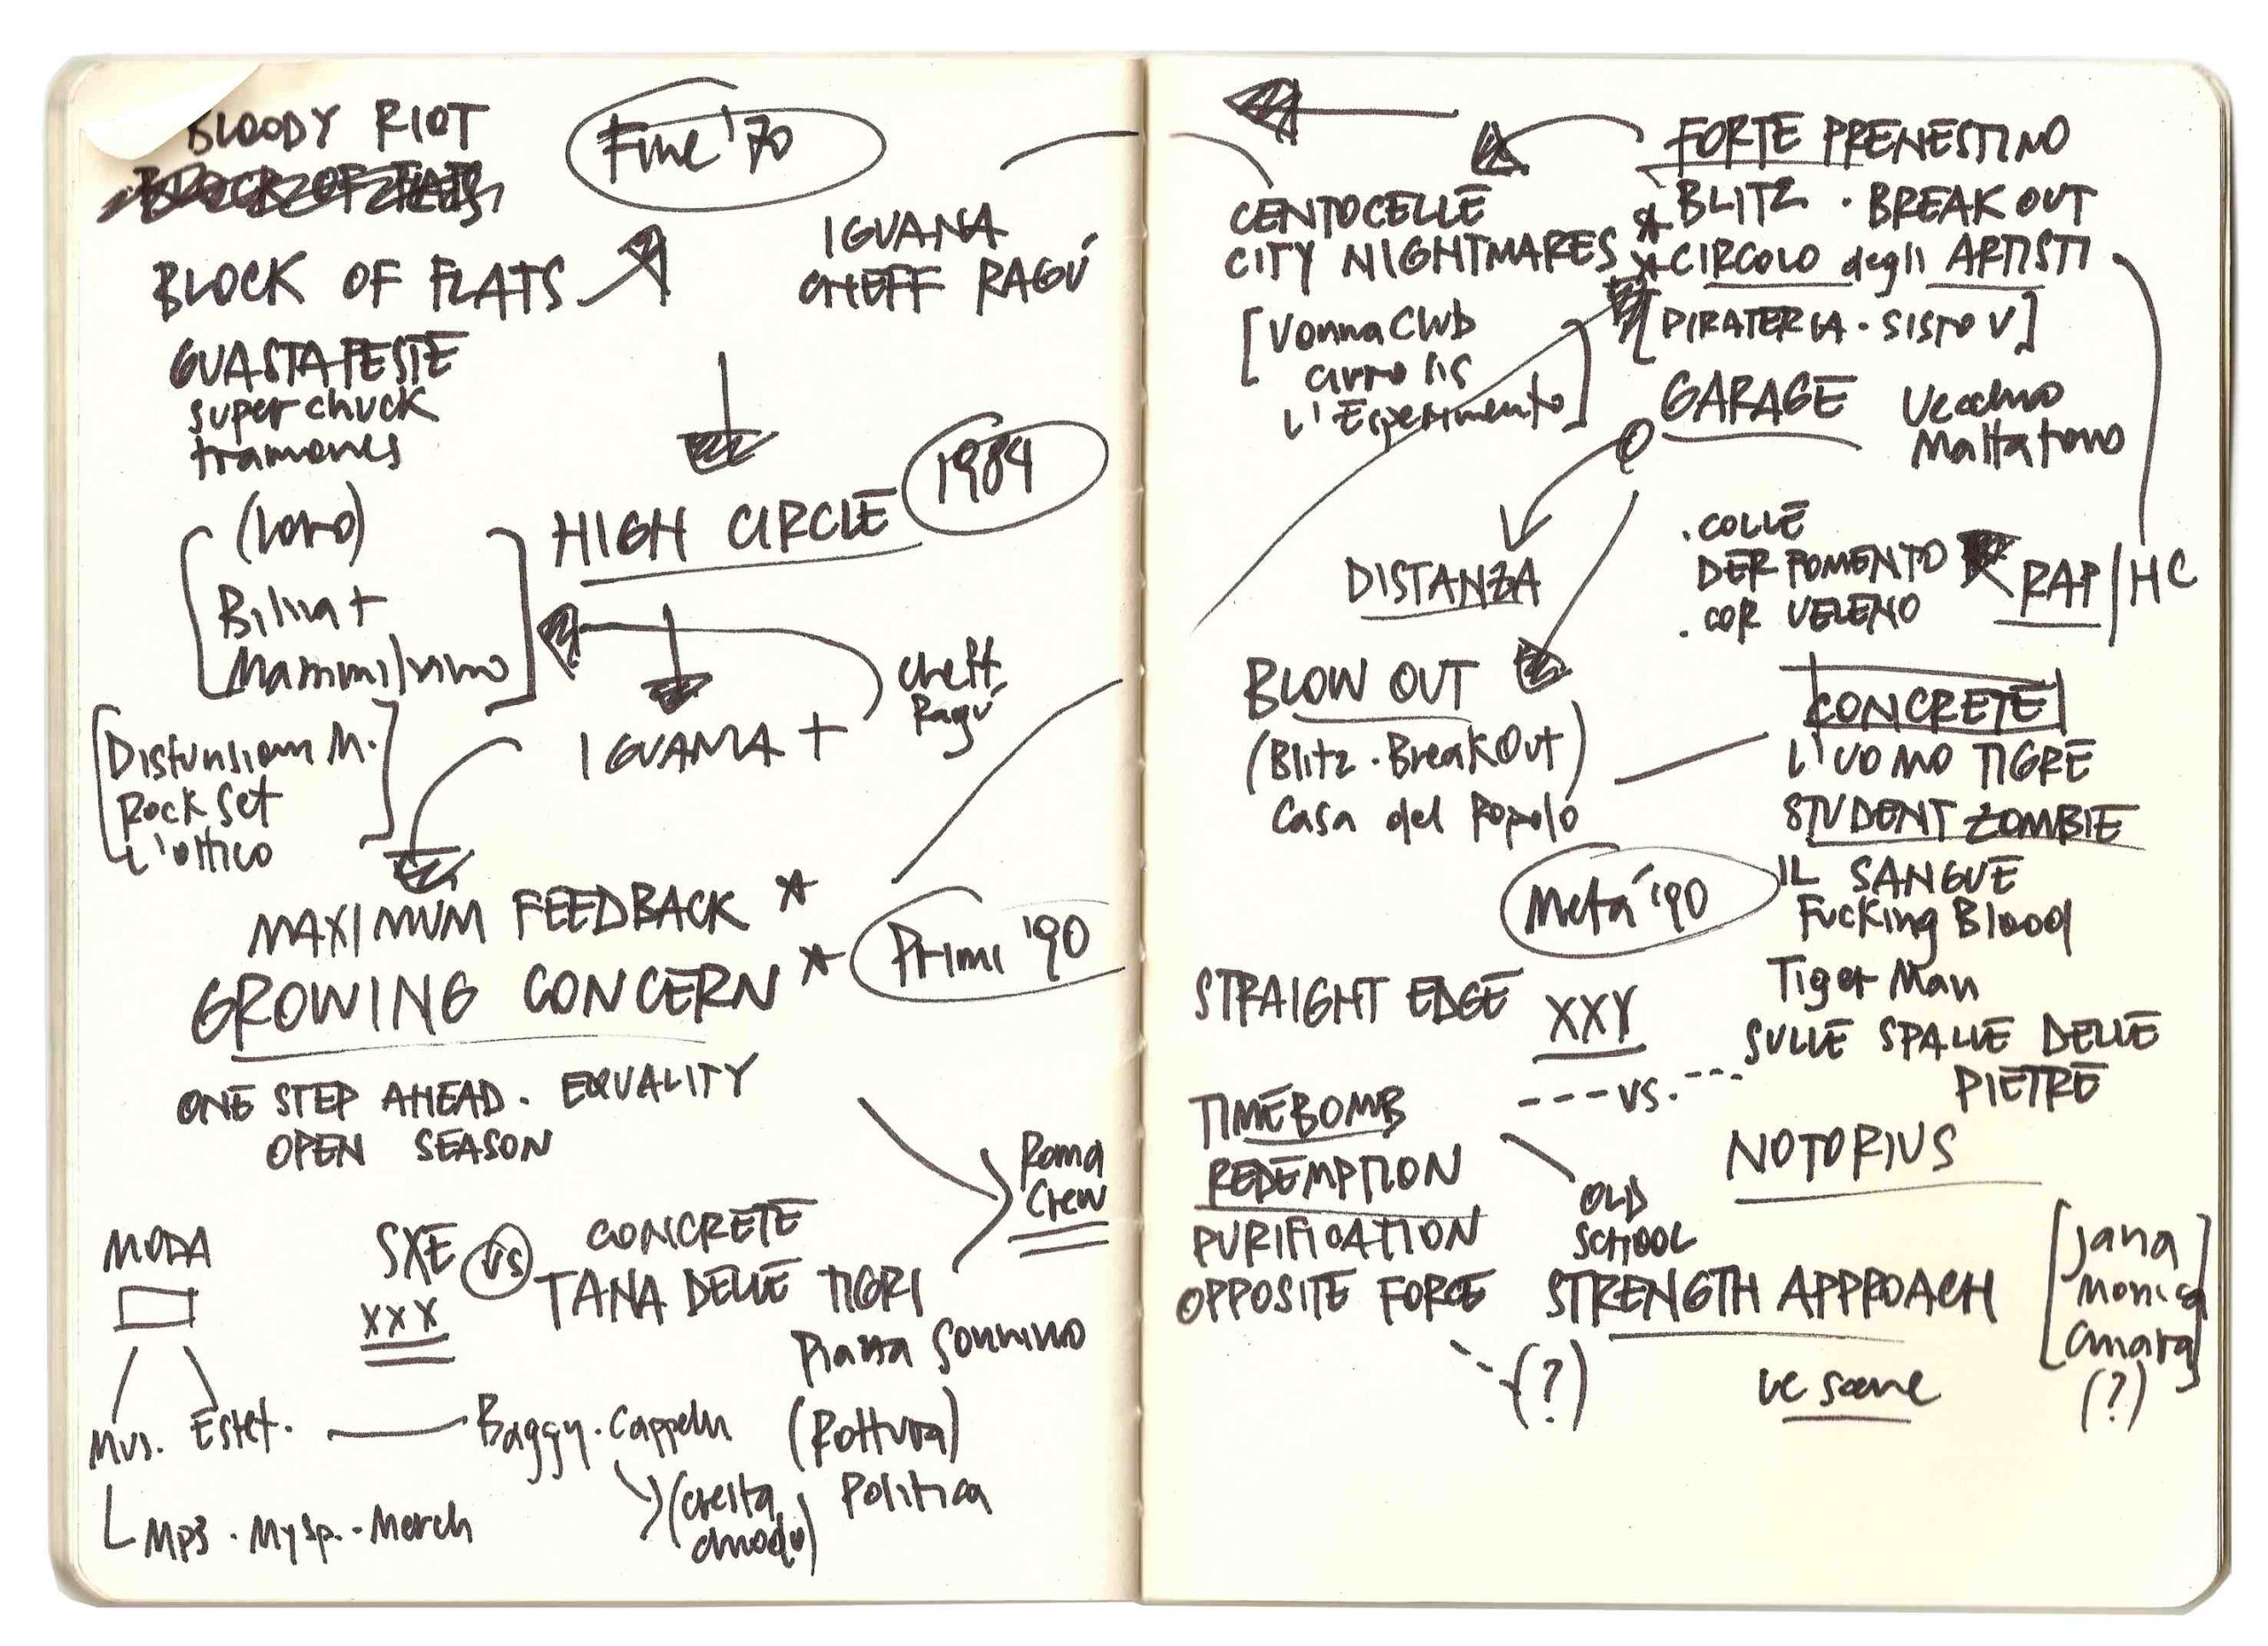 BLOODY RIOT
Fine '70
BLOCK OF FLATS
IGUANA
CHEFF RAGÚ
GUASTAFESTE
super chuck
tramones
1984
HIGH CIRCLE
(loro)
Bilna +
Mammi/vino
cheff.
Ragú
IGUANA +
Rock Set
L'ottico
MAXIMUM FEEDBACK *
GROWING CONCERN *
Primi '90
ONE STEP AHEAD. EQUALITY
OPEN SEASON
Roma
Crew
MODA
SXE VS CONCRETE
XXX
TANA DELLE TIGRI
Piazza Sonnino
Mus. Estet.
Baggy. Cappelli
(Rottura)
Politica
(cresta
MP3 . Mysp. . Merch
FORTE PRENESTINO
* BLITZ . BREAK OUT
* CIRCOLO degli ARTISTI
[PIRATERIA . SISTO V]
CENTOCELLE
CITY NIGHTMARES
[Vonna Club
L'Esperimento]
GARAGE
Vecchio
Mattatoio
DISTANZA
. COLLE
DER FOMENTO
. COR VELENO
RAP/HC
BLOW OUT
(Blitz . BreakOut)
Casa del Popolo
CONCRETE
L'UOMO TIGRE
STUDENT ZOMBIE
IL SANGUE
Fucking Blood
Tiger Man
SULLE SPALLE DELLE
PIETRE
Metá '90
STRAIGHT EDGE
XXY
--- VS. ---
TIMEBOMB
REDEMPTION
PURIFICATION
OPPOSITE FORCE
OLD
SCHOOL
NOTORIUS
STRENGTH APPROACH
[Jana
Monica
Chiara]
(?)
(?)
VE scene